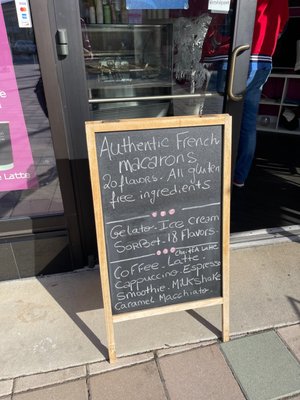 Authentic French
macarons
20 flavors. All gluten
free ingredients
Gelato. Ice Cream
Sorbet. 18 Flavors
Chai Tea Latte
Coffee. Latte.
Cappuccino. Espresso
Smoothie. Milkshake
Caramel Macchiato
Latte